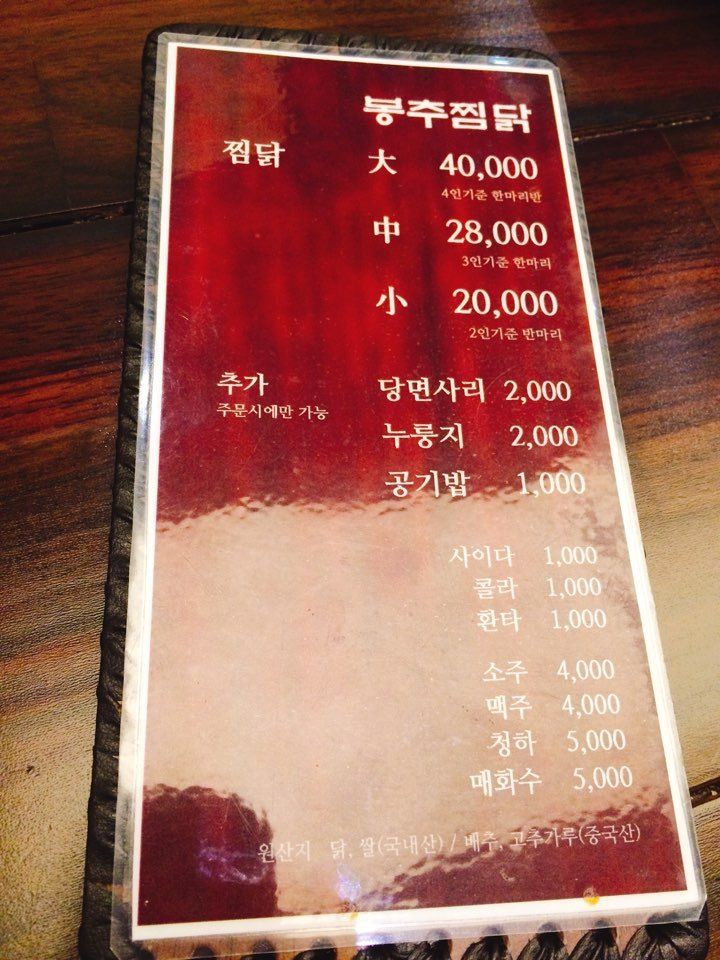 봉추찜닭
찜닭 大 40,000
4인기준 한마리반
中 28,000
3인기준 한마리
小 20,000
2인기준 반마리
추가 당면사리 2,000
주문시에만 가능
누룽지 2,000
공기밥 1,000
사이다 1,000
콜라 1,000
환타 1,000
소주 4,000
맥주 4,000
청하 5,000
매화수 5,000
원산지 닭, 쌀(국내산) / 배추, 고추가루(중국산)